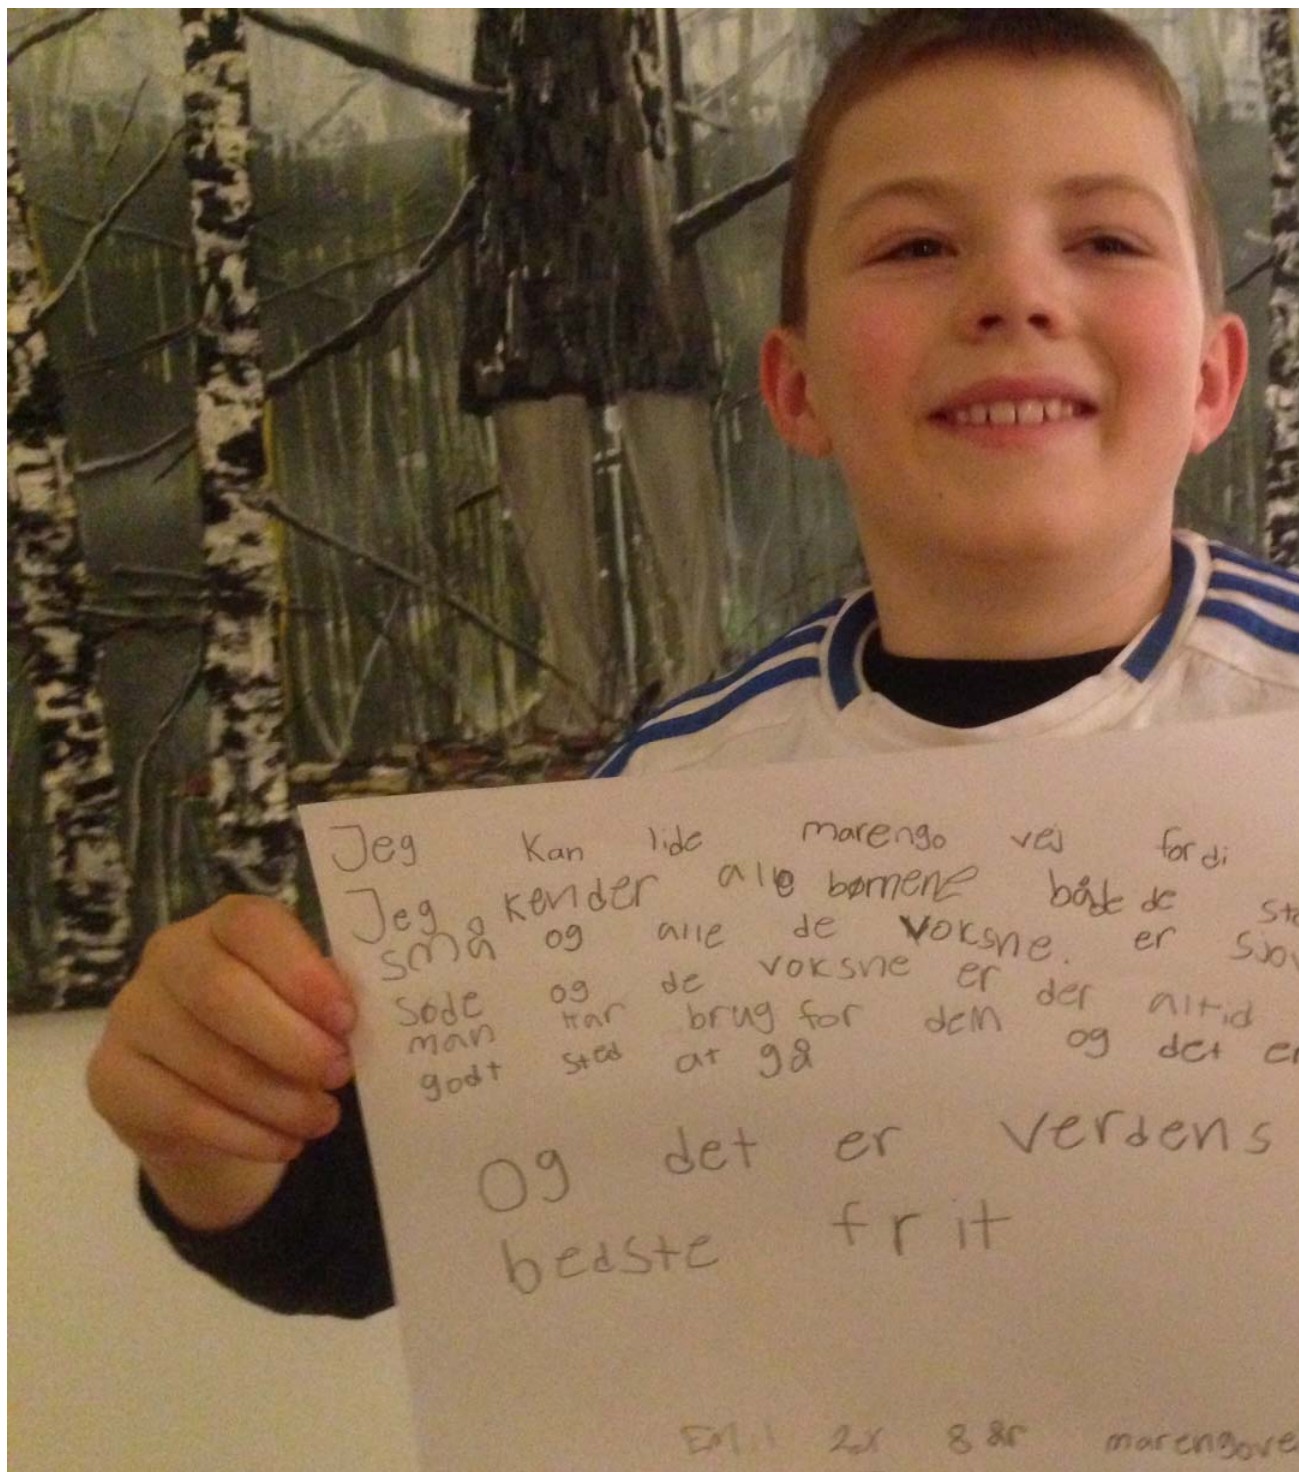 Jeg kan lide marengo vej fordi
Jeg kender alle børnene både de
små og alle de voksne. er
søde og de voksne er der altid
man har brug for dem og det er
godt sted at gå
og det er verdens
bedste frit
Emil 2.x 8 år